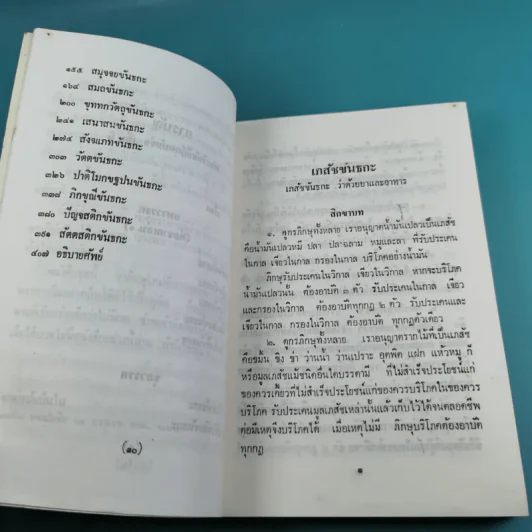 ๑๕๕ สมุจจยขันธกะ
๑๖๔ สมถขันธกะ
๒๐๐ ขุททกวัตถุขันธกะ
๒๔๑ เสนาสนขันธกะ
๒๗๔ สังฆเภทขันธกะ
๓๐๓ วัตตขันธกะ
๓๒๖ ปาติโมกขฐปนขันธกะ
๓๓๘ ภิกขุณีขันธกะ
๓๘๐ ปัญจสติกขันธกะ
๓๙๑ สัตตสติกขันธกะ
๔๐๗ อธิบายศัพย์
(๑๐)
เภสัชชันธกะ
เภสัชชันธกะ ว่าด้วยยาและอาหาร
สิกขาบท
๑. ดูกรภิกษุทั้งหลาย เราอนุญาตน้ำมันเปลวเป็นเภสัช
คือน้ำมันเปลวหมี ปลา ปลาฉลาม หมูและลา ที่รับประเคน
ในกาล เจียวในกาล กรองในกาล บริโภคอย่างน้ำมัน
ภิกษุรับประเคนในวิกาล เจียวในวิกาล หากจะบริโภค
น้ำมันเปลวนั้น ต้องอาบัติ ๓ ตัว รับประเคนในกาล เจียว
และกรองในวิกาล ต้องอาบัติทุกกฏ ๒ ตัว รับประเคนและ
เจียวในกาล กรองในวิกาล ต้องอาบัติ ทุกกฏตัวเดียว
๒. ดูกรภิกษุทั้งหลาย เราอนุญาตรากไม้ที่เป็นเภสัช
คือขมิ้น ขิง ข่า ว่านน้ำ ว่านเปราะ อุตพิด แฝก แห้วหมู ก็
หรือมูลเภสัชแม้ชนิดอื่นใดบรรดามี ที่ไม่สำเร็จประโยชน์แก่
ของควรเคี้ยวที่ไม่สำเร็จประโยชน์แก่ของควรบริโภคในของควร
บริโภค รับประเคนมูลเภสัชเหล่านั้นแล้วเก็บไว้ได้จนตลอดชีพ
ต่อมีเหตุจึงบริโภคได้ เมื่อเหตุไม่มี ภิกษุบริโภคต้องอาบัติ
ทุกกฏ